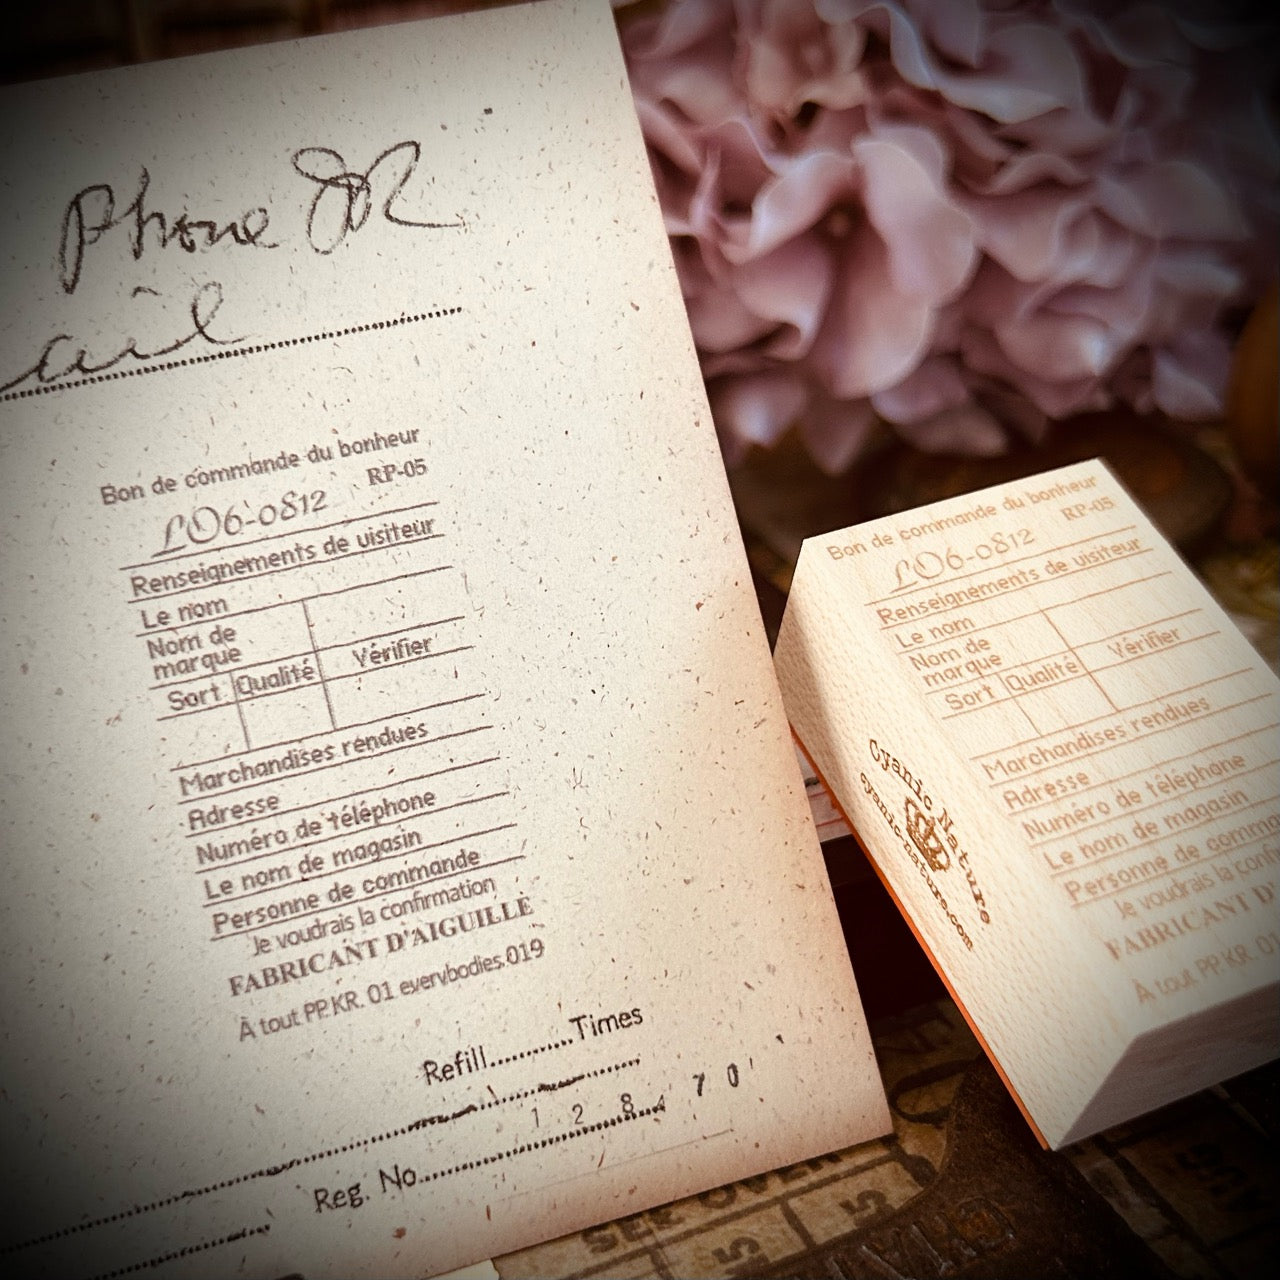 Phone
ail
Bon de commande du bonheur
LO6-0812 RP-05
Renseignements de visiteur
Le nom
Nom de
marque
Vérifier
Sort Qualité
Marchandises rendues
Adresse
Numéro de téléphone
Le nom de magasin
Personne de commande
Je voudrais la confirmation
FABRICANT D'AIGUILLE
À tout PP.KR. 01 everybodies.019
Refill............Times
1 2 8 7 0
Reg. No.
Bon de commande du bonheur
LO6-0812 RP-05
Renseignements de visiteur
Le nom
Nom de
marque
Vérifier
Sort Qualité
Marchandises rendues
Adresse
Numéro de téléphone
Le nom de magasin
Personne de comma
Je voudrais la confi
FABRICANT D'
À tout PP.KR. 01
Cyanic Nature
cyanicnature.com
5 5